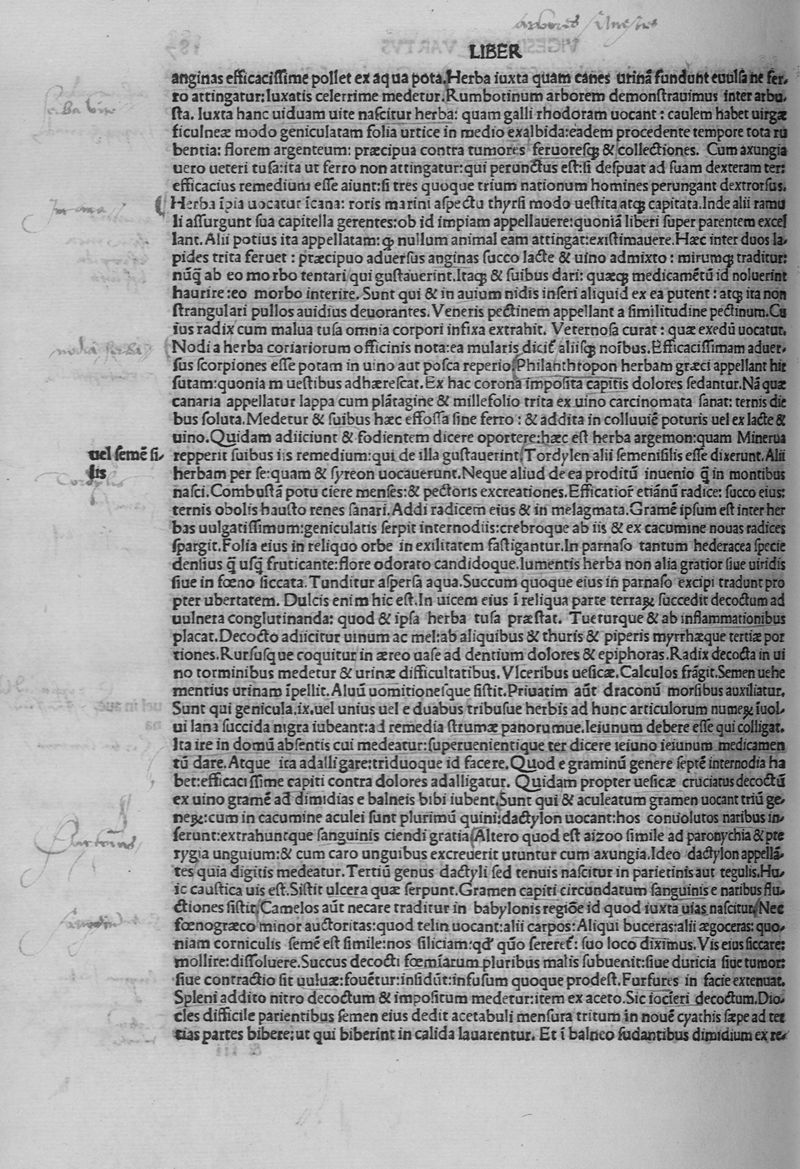 LIBER
anginas efficacissime pollet ex aqua pota. Herba iuxta quam canes urinã fundunt euulsa ne fer-
ro attingatur: luxatis celerrime medetur. Rumbotinum arborem demonstrauimus inter arbu-
sta. Iuxta hanc uiduam uite nascitur herba: quam galli rhodoram uocant: caulem habet uirgæ
ficulneæ modo geniculatam folia urtice in medio exalbida: eadem procedente tempore tota ru
bentia: florem argenteum: præcipua contra tumores feruoresq; & collectiones. Cum axungia
uero ueteri tusa: ita ut ferro non attingatur: qui perunctus est: si despuat ad suam dexteram ter:
efficacius remedium esse aiunt: si tres quoque trium nationum homines perungant dextrorsus.
Herba ĩpia uocatur icana: roris marini aspectu thyrsi modo uestita atq; capitata. Inde alii ramu
li assurgunt sua capitella gerentes: ob id impiam appellauere: quoniã liberi super parentem excel
lant. Alii potius ita appellatam: ꝙ nullum animal eam attingat: existimauere. Hæc inter duos la-
pides trita feruet: præcipuo aduersus anginas succo lacte & uino admixto: mirumq; traditur:
nũq̃ ab eo morbo tentari qui gustauerint. Itaq; & suibus dari: quæq; medicamẽtũ id noluerint
haurire: eo morbo interire. Sunt qui & in auium nidis inseri aliquid ex ea putent: atq; ita non
strangulari pullos auidius deuorantes. Veneris pectinem appellant a similitudine pectinum. Cu
ius radix cum malua tusa omnia corpori infixa extrahit. Veternosa curat: quæ exedũ uocatur.
Nodia herba coriariorum officinis nota: ea mularis dicit̃ aliisq; noĩbus. Efficacissimam aduer-
sus scorpiones esse potam in uino aut posca reperio. Philanthropon herbam græci appellant hir
sutam: quoniam uestibus adhærescat. Ex hac corona imposita capitis dolores sedantur. Nã quæ
canaria appellatur lappa cum plãtagine & millefolio trita ex uino carcinomata sanat: ternis die
bus soluta. Medetur & suibus hæc effossa sine ferro: & addita in colluuiẽ poturis uel ex lacte &
uino. Quidam adiiciunt & fodientem dicere oportere: hæc est herba argemon: quam Minerua
uel semẽ si- repperit suibus iis remedium: qui de illa gustauerint. Tordylen alii semensilis esse dixerunt. Alii
lis herbam per se: quam & syreon uocauerunt. Neque aliud de ea proditũ inuenio q̃ in montibus
nasci. Combustã potu ciere menses: & pectoris excreationes. Efficatior̃ etiãnũ radice: succo eius:
ternis obolis hausto renes sanari. Addi radicem eius & in melagmata. Gramẽ ipsum est inter her
bas uulgatissimum: geniculatis serpit internodiis: crebroque ab iis & ex cacumine nouas radices
spargit. Folia eius in reliquo orbe in exilitatem fastigantur. In parnaso tantum hederacea specie
densius q̃ usq̃ fruticante: flore odorato candidoque. Iumentis herba non alia gratior siue uiridis
siue in fœno siccata. Tunditur aspersa aqua. Succum quoque eius in parnaso excipi tradunt pro
pter ubertatem. Dulcis enim hic est. In uicem eius ĩ reliqua parte terraꝝ succedit decoctum ad
uulnera conglutinanda: quod & ipsa herba tusa præstat. Tueturque & ab inflammationibus
placat. Decocto adiicitur uinum ac mel: ab aliquibus & thuris & piperis myrrhæque tertiæ por
tiones. Rursusque coquitur in æreo uase ad dentium dolores & epiphoras. Radix decocta in ui
no torminibus medetur & urinæ difficultatibus. Vlceribus ueficæ. Calculos frãgit. Semen uehe
mentius urinam ĩpellit. Aluũ uomitionesque sistit. Priuatim aũt draconũ morsibus auxiliatur.
Sunt qui genicula .ix. uel unius uel e duabus tribusue herbis ad hunc articulorum numeꝝ iuol-
ui lana succida nigra iubeant: ad remedia strumæ panorumue. Ieiunum debere esse qui colligat.
Ita ire in domũ absentis cui medeatur: superuenientique ter dicere ieiuno ieiunum medicamen
tũ dare. Atque ita adalligare: triduoque id facere. Quod e graminũ genere septẽ internodia ha
bet: efficacissime capiti contra dolores adalligatur. Quidam propter ueficæ cruciatus decoctũ
ex uino gramẽ ad dimidias e balneis bibi iubent. Sunt qui & aculeatum gramen uocant triũ ge-
neꝝ: cum in cacumine aculei sunt plurimũ quini: dactylon uocant: hos conuolutos naribus in-
serunt: extrahuntque sanguinis ciendi gratia. Altero quod est aizoo simile ad paronychia & pte
rygia unguium: & cum caro unguibus excreuerit utuntur cum axungia. Ideo dactylon appellã-
tes quia digitis medeatur. Tertiũ genus dactyli sed tenuis nascitur in parietinis aut tegulis. Hu-
ic caustica uis est. Sistit ulcera quæ serpunt. Gramen capiti circundatum sanguinis e naribus flu-
ctiones sistit. Camelos aũt necare traditur in babylonis regiõe id quod iuxta uias nascitur. Nec
fœnogræco minor auctoritas: quod telin uocant: alii carpos: Aliqui buceras: alii ægoceras: quo-
niam corniculis semẽ est simile: nos siliciam: qd̃ quo sereret̃: suo loco diximus. Vis eius siccare:
mollire: dissoluere. Succus decocti fœmĩarum pluribus malis subuenit: siue duricia siue tumor:
siue contractio sit uuluæ: fouẽtur: insidũt: infusum quoque prodest. Furfures in facie extenuat.
Spleni addito nitro decoctum & impositum medetur: item ex aceto. Sic iocĩeri decoctum. Dio-
cles difficile parientibus semen eius dedit acetabuli mensura tritum in nouẽ cyathis sæpe ad ter
tias partes bibere: ut qui biberint in calida lauarentur. Et ĩ balneo sudantibus dimidium ex re-